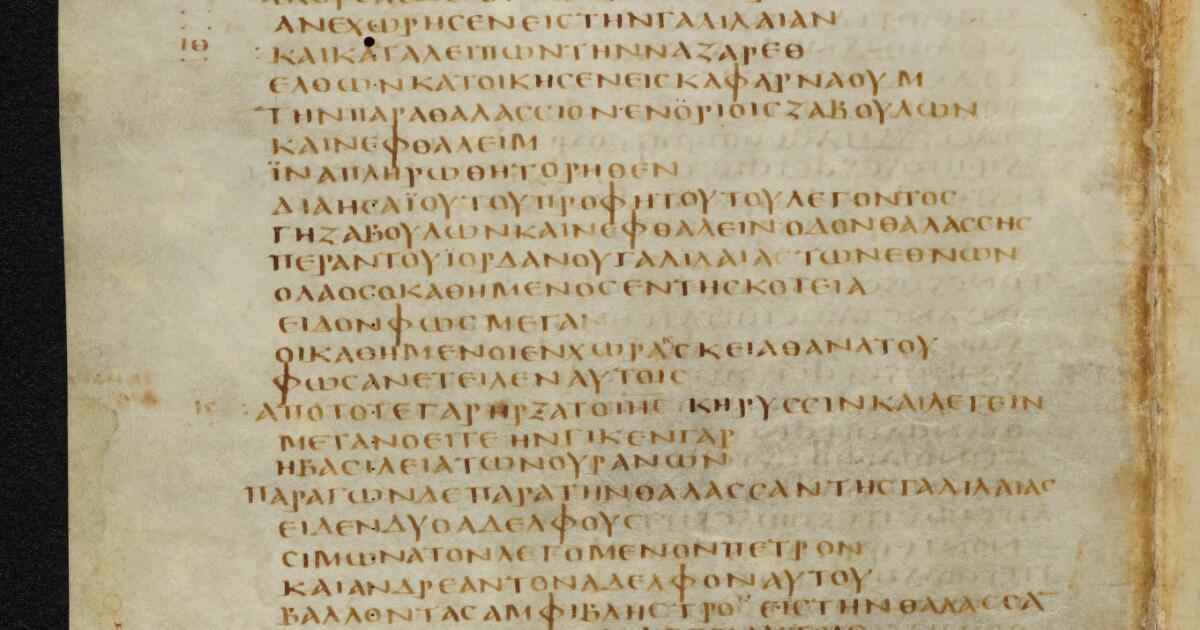 ΑΝΕΧΩΡΗСΕΝΕΙСΤΗΝΓΑΛΙΛΑΙΑΝ
ΙΘ ΚΑΙΚΑΤΑΛΕΙΠΩΝΤΗΝΝΑΖΑΡΕΘ
ΕΛΘΩΝΚΑΤΟΙΚΗСΕΝΕΙСΚΑΦΑΡΝΑΟΥΜ
ΤΗΝΠΑΡΑΘΑΛΑССΙΟΝΕΝΟΡΙΟΙСΖΑΒΟΥΛΩΝ
ΚΑΙΝΕΦΘΑΛΕΙΜ
ΪΝΑΠΛΗΡΩΘΗΤΟΡΗΘΕΝ
ΔΙΑΗСΑΪΟΥΤΟΥΠΡΟΦΗΤΟΥΤΟΥΛΕΓΟΝΤΟС
ΓΗΖΑΒΟΥΛΩΝΚΑΙΝΕΦΘΑΛΕΙΝΟΔΟΝΘΑΛΑССΗС
ΠΕΡΑΝΤΟΥΪΟΡΔΑΝΟΥΓΑΛΙΛΑΙΑ ΤΩΝΕΘΝΩΝ
ΟΛΑΟСΟΚΑΘΗΜΕΝΟСΕΝΤΗСΚΟΤΕΙΑ
ΕΙΔΟΝΦΩСΜΕΓΑΝ
ΟΙΚΑΘΗΜΕΝΟΙΕΝΧΩΡΑСΚΕΙΑΘΑΝΑΤΟΥ
ΦΩСΑΝΕΤΕΙΛΕΝΑΥΤΟΙС
ΑΠΟΤΟΤΕΓΑΡΗΡΞΑΤΟΙΗС ΚΗΡΥССΙΝΚΑΙΛΕΓΕΙΝ
ΜΕΤΑΝΟΕΙΤΕΗΝΓΙΚΕΝΓΑΡ
ΗΒΑСΙΛΕΙΑΤΩΝΟΥΡΑΝΩΝ
ΠΑΡΑΓΩΝΔΕΠΑΡΑΤΗΝΘΑΛΑССΑΝΤΗСΓΑΛΙΛΑΙΑС
ΕΙΔΕΝΔΥΟΑΔΕΛΦΟΥС
СΙΜΩΝΑΤΟΝΛΕΓΟΜΕΝΟΝΠΕΤΡΟΝ
ΚΑΙΑΝΔΡΕΑΝΤΟΝΑΔΕΛΦΟΝΑΥΤΟΥ
ΒΑΛΛΟΝΤΑСΑΜΦΙΒΛΗСΤΡΟ ΕΙСΤΗΝΘΑΛΑССΑ¯